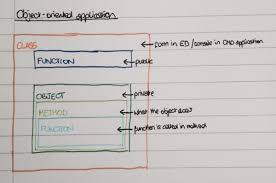 Object-oriented application
CLASS
← form in ED / console in CMD application
FUNCTION
← public
OBJECT
← private
METHOD
← what the object does
FUNCTION
← function is called in method